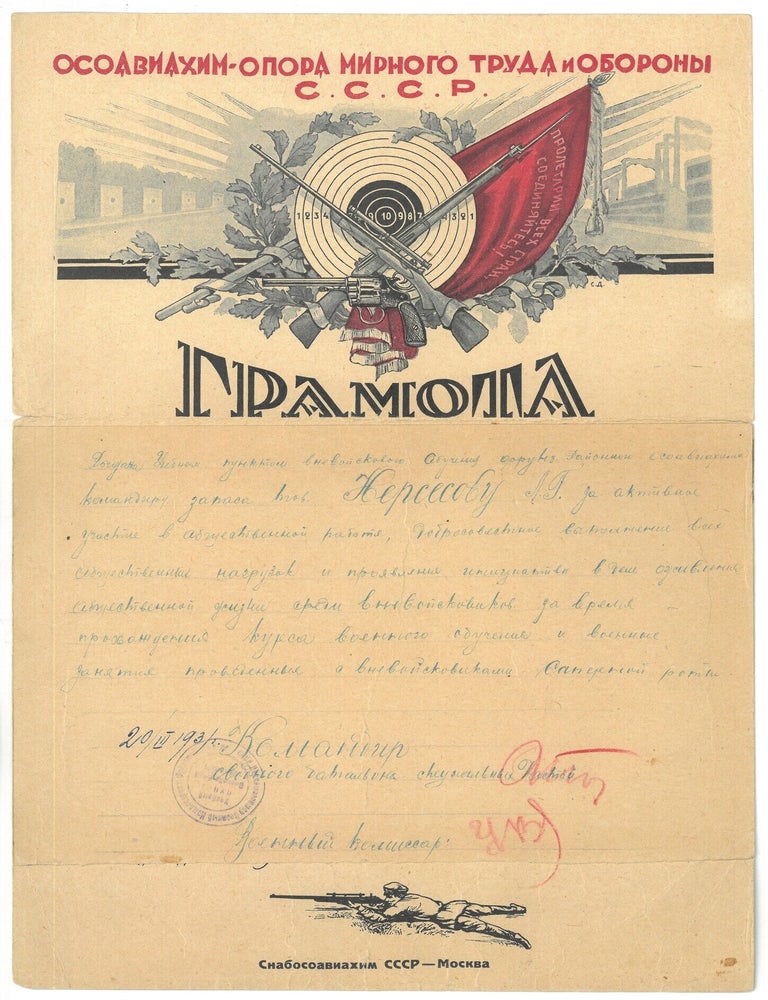 ОСОАВИАХИМ-ОПОРА МИРНОГО ТРУДА и ОБОРОНЫ
С.С.С.Р.
ПРОЛЕТАРИИ ВСЕХ СТРАН,
СОЕДИНЯЙТЕСЬ!
1 2 3 4 9 10 9 8 7 4 3 2 1
С.Д.
ГРАМОТА
пунктом вневойскового обучения
командиру запаса тов Нерсесову А.Г. за активное
участие в общественной работе, добросовестное выполнение всех
общественных нагрузок и проявления в деле оживления
общественной жизни среди вневойсковиков за время —
прохождения курса военного обучения и военные
занятия проведенные с вневойсковиками Саперной роты.
20/III 193
Командир
сводного батальона
Военный комиссар:
Снабосоавиахим СССР—Москва